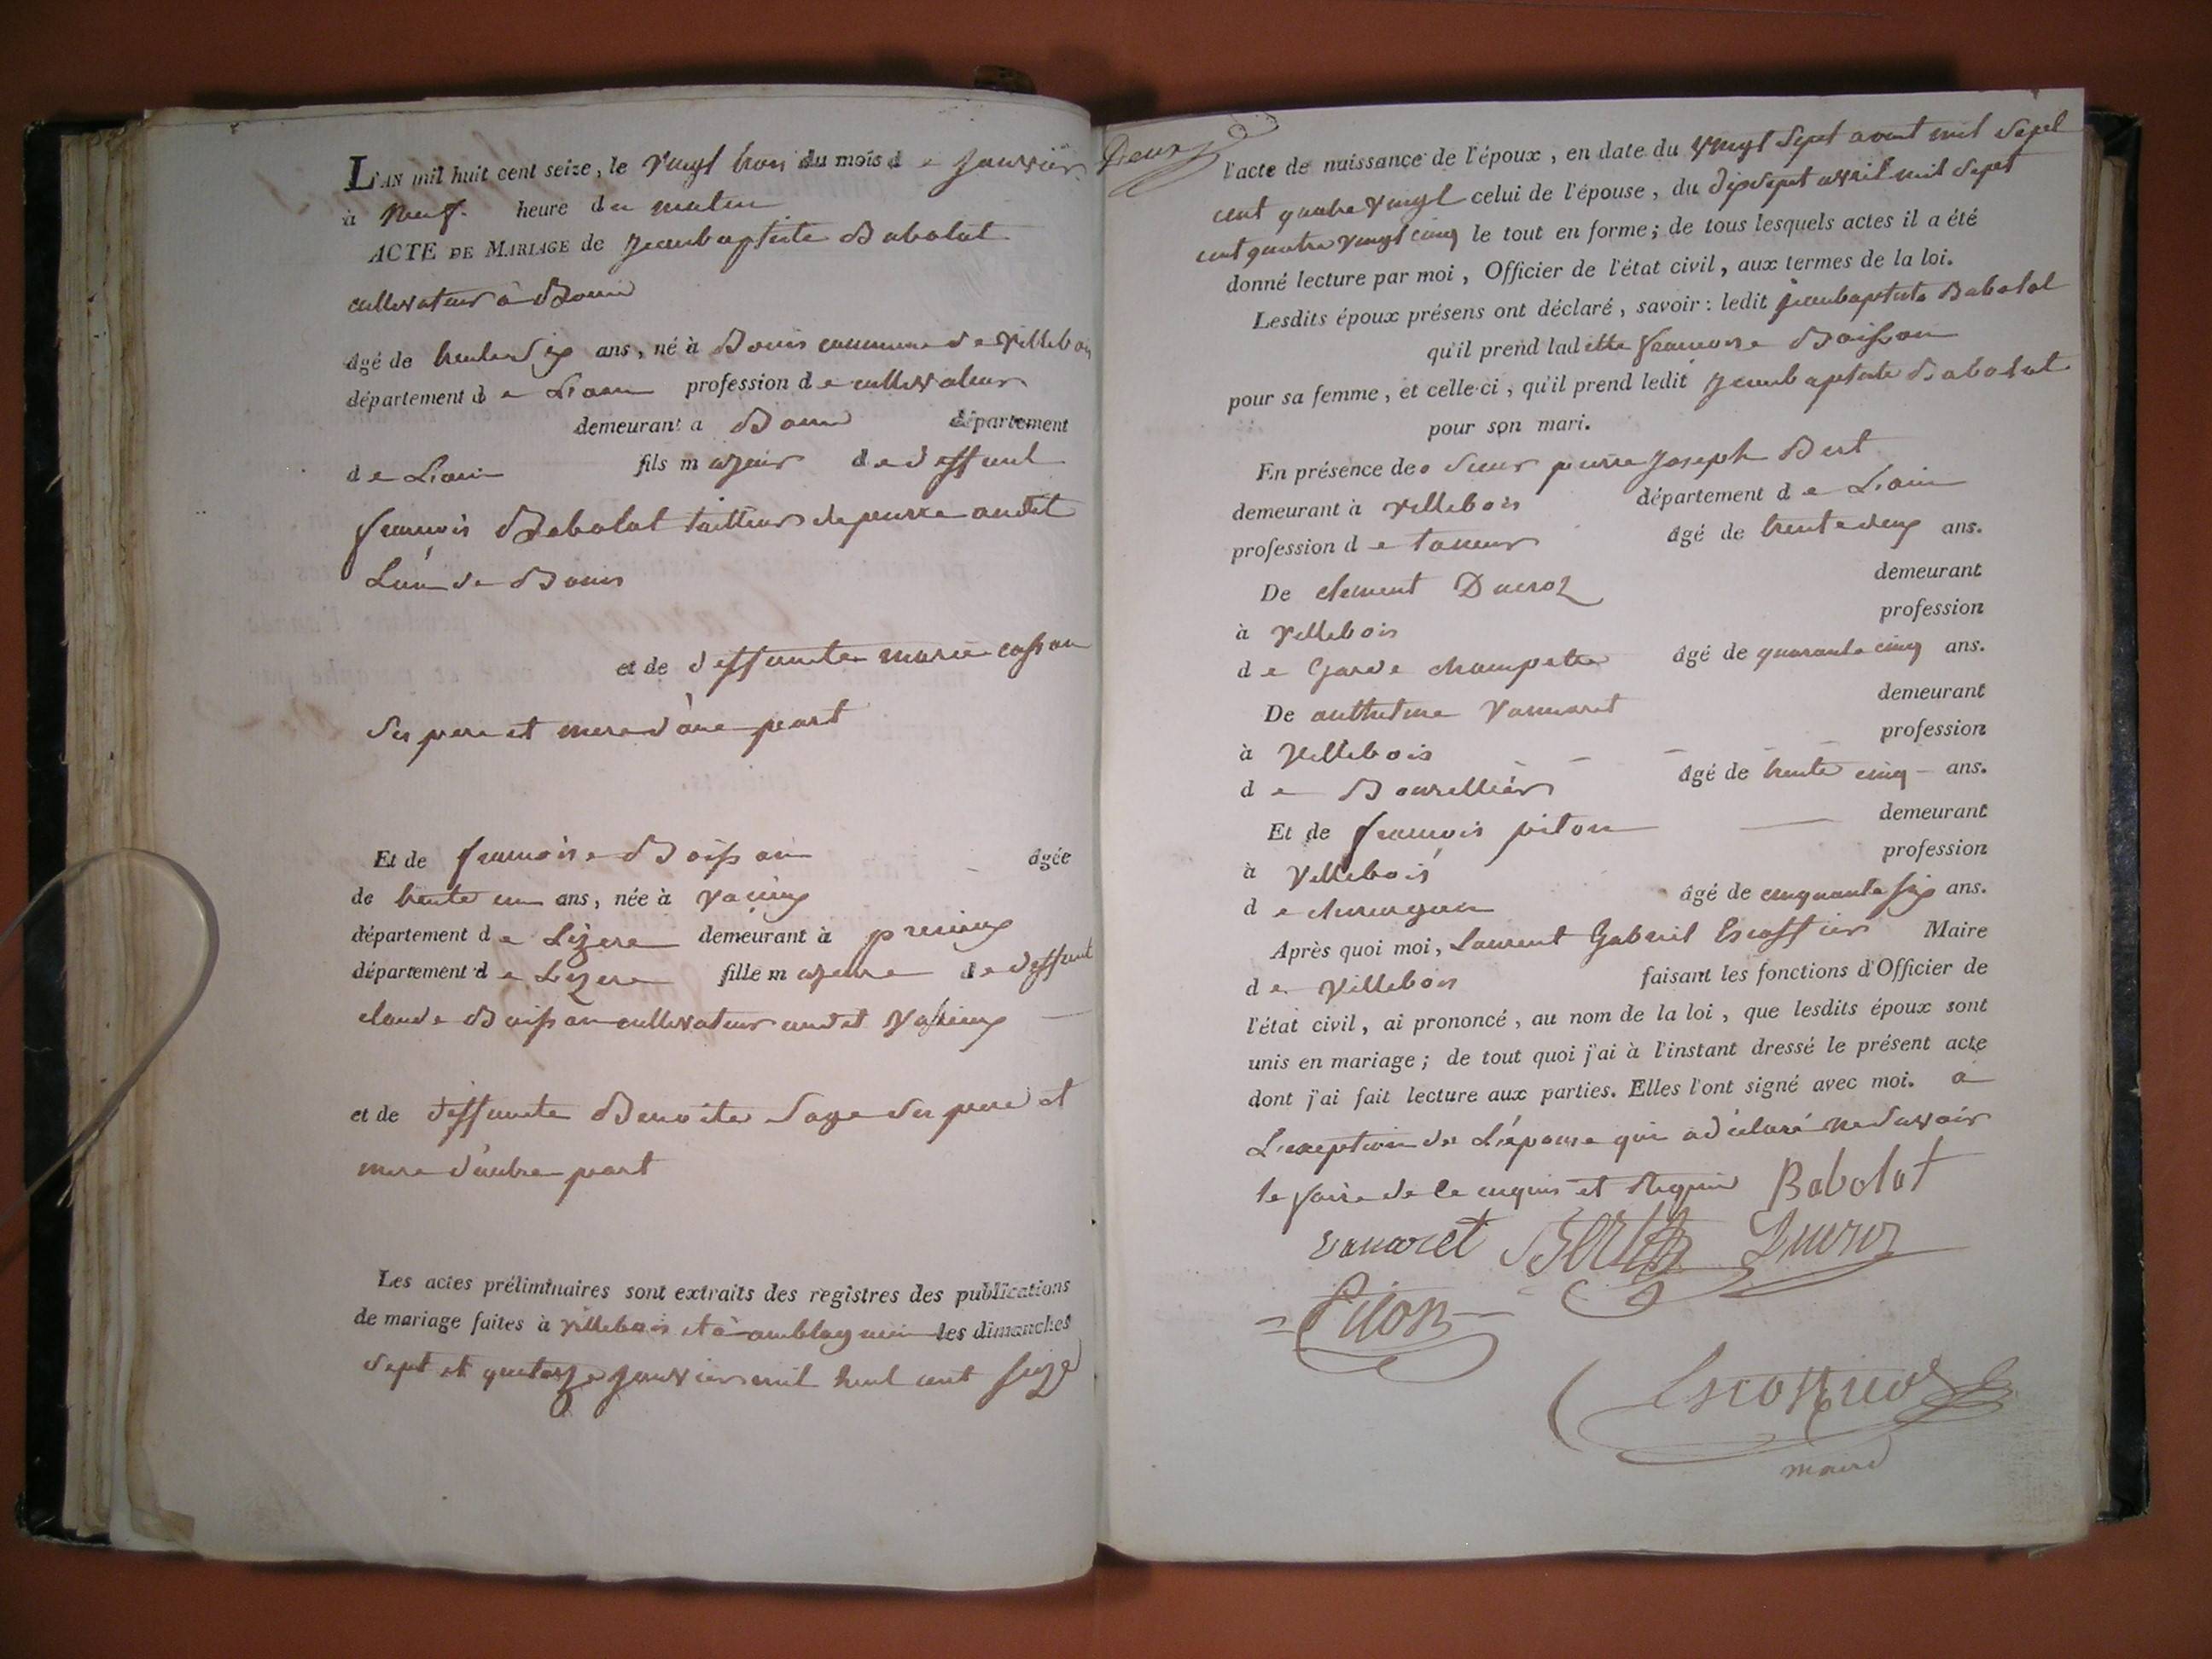 L'AN mil huit cent seize, le vingt trois du mois de janvier
à neuf heure du matin
ACTE DE MARIAGE de jeanbaptiste Babolat
cultivateur à Bouis
âgé de trente six ans, né à Bouis commune de villebois
département de L'ain profession de cultivateur
demeurant a Bouis département
de L'ain fils majeur de deffunt
françois Babolat tailleur de pierre audit
Lieu de Bouis
et de deffunte marie
ses pere et mere d'une part
Et de françoise Boisson âgée
de trente un ans, née à
département de Lizere demeurant à
département de Lizere fille majeure de deffunt
claude Boisson cultivateur audit
et de deffunte Benoite Sage ses pere et
mere d'autre part
Les actes préliminaires sont extraits des registres des publications
de mariage faites à villebois et à amblagnieu les dimanches
sept et quatorze janvier mil huit cent seize
Deux
l'acte de naissance de l'époux, en date du vingt sept aout mil sept
cent quatre vingt celui de l'épouse, du dixsept avril mil sept
cent quatre vingt cinq le tout en forme; de tous lesquels actes il a été
donné lecture par moi, Officier de l'état civil, aux termes de la loi.
Lesdits époux présens ont déclaré, savoir: ledit jeanbaptiste Babolat
qu'il prend ladette françoise Boisson
pour sa femme, et celle-ci, qu'il prend ledit jeanbaptiste Babolat
pour son mari.
En présence de sieur pierre joseph Bert
demeurant à villebois département de L'ain
profession de taneur âgé de trente deux ans.
De clement Ducroz demeurant
à villebois profession
de Garde champetre âgé de quarante cinq ans.
De anthelme Vanaret demeurant
à villebois profession
de Bourellier âgé de trente cinq ans.
Et de françois piton demeurant
à villebois profession
de chirurgien âgé de cinquante six ans.
Après quoi moi, Laurent Gabriel Escoffier Maire
de villebois faisant les fonctions d'Officier de
l'état civil, ai prononcé, au nom de la loi, que lesdits époux sont
unis en mariage; de tout quoi j'ai à l'instant dressé le présent acte
dont j'ai fait lecture aux parties. Elles l'ont signé avec moi. a
L'exception de L'épouse qui a déclaré ne savoir
le faire de ce enquis et requis Babolat
vanaret Bert Ducroz
Piton
Escoffier
maire